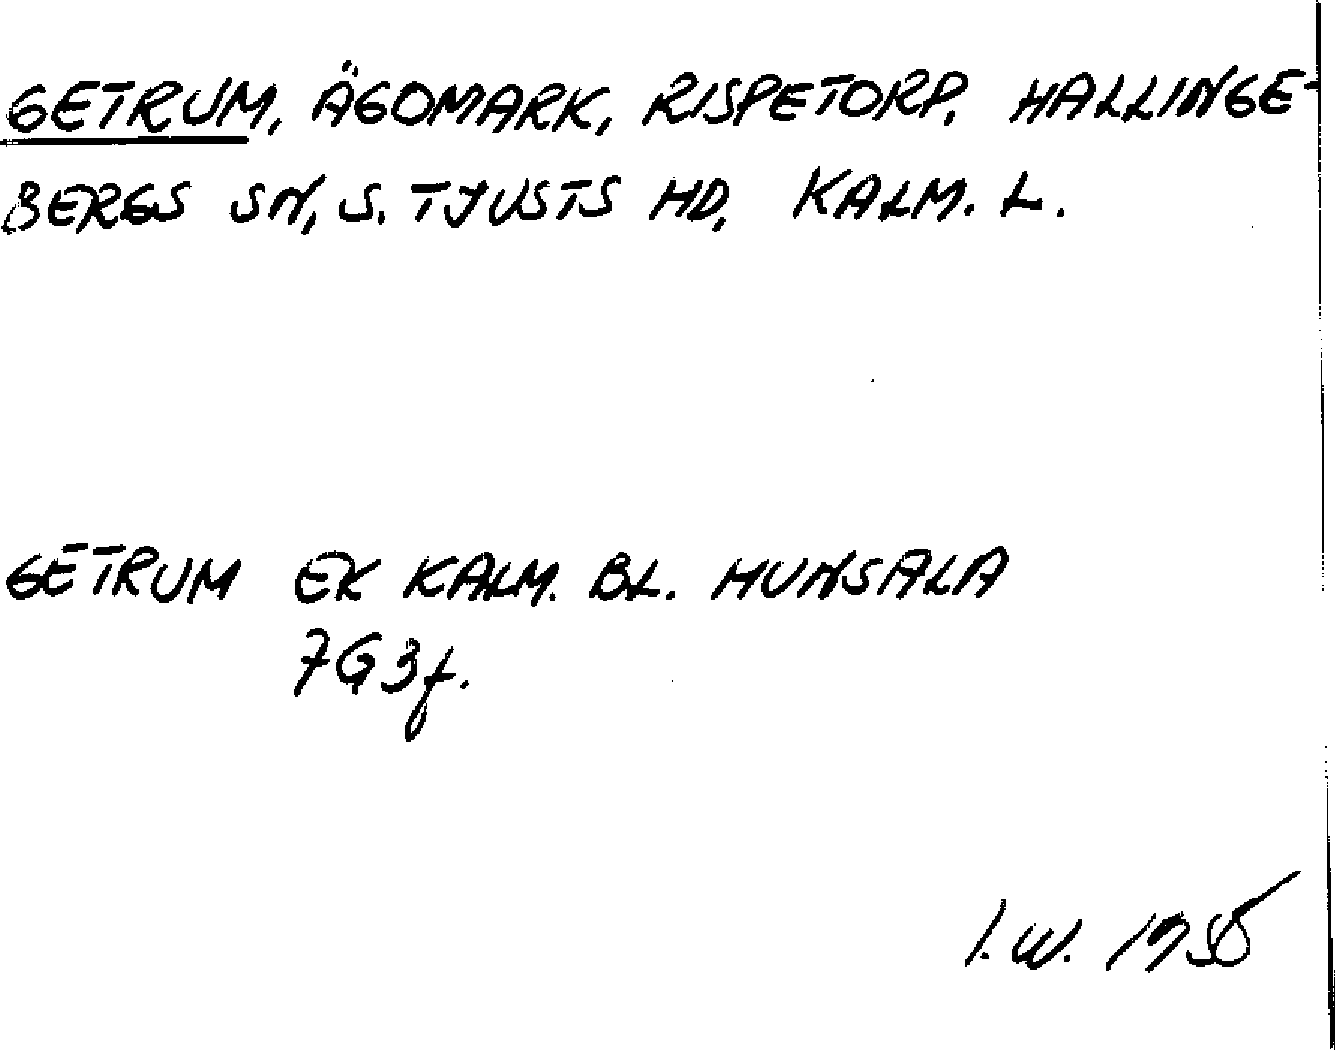 GETRUM, ÄGOMARK, RISPETORP, HALLINGE-
BERGS SN, S. TJUSTS HD, KALM. L.
GETRUM EK KALM. BL. HUNSALA
7G3f.
I.W.